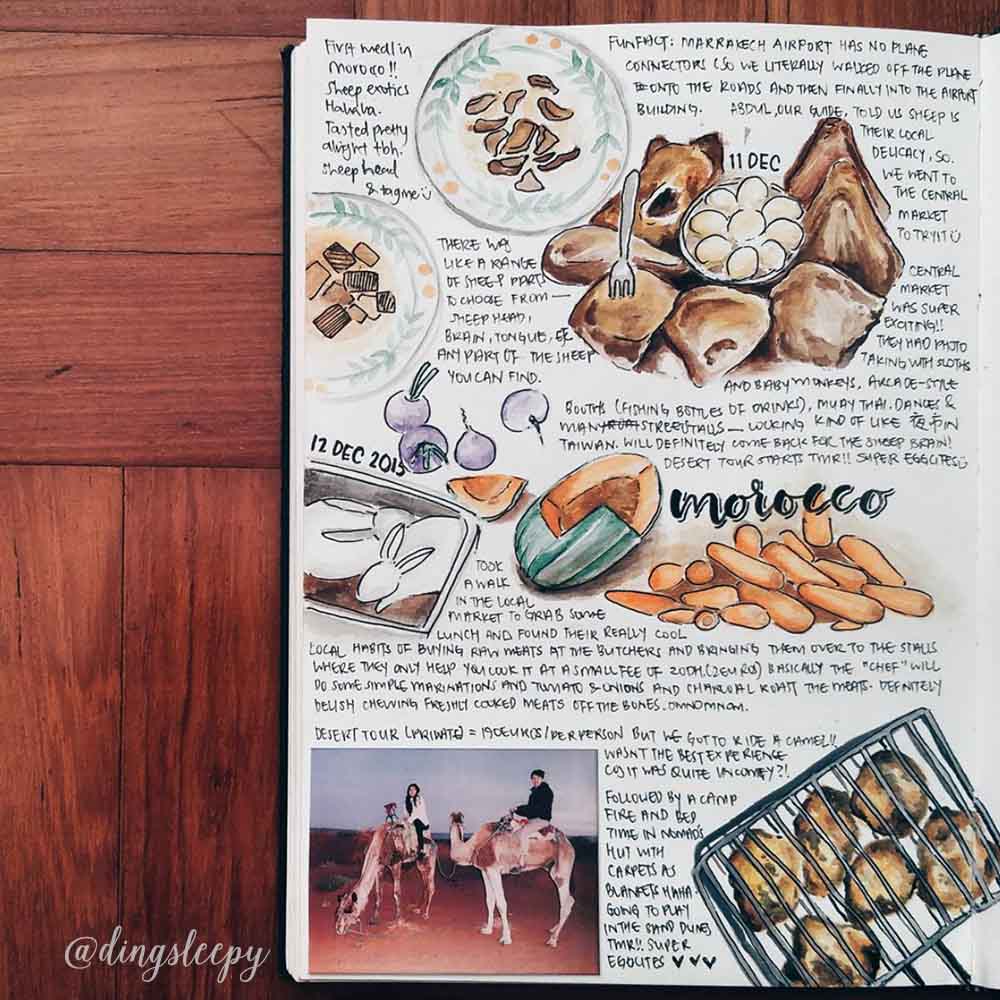 First meal in
morocco!!
Sheep exotics
Hahaha.
Tasted pretty
alright tbh.
sheep head
& tagine
FUNFACT: MARRAKECH AIRPORT HAS NO PLANE
CONNECTORS (SO WE LITERALLY WALKED OFF THE PLANE
ONTO THE ROADS AND THEN FINALLY INTO THE AIRPORT
BUILDING. ABDUL, OUR GUIDE, TOLD US SHEEP IS
THEIR LOCAL
DELICACY, SO.
WE WENT TO
THE CENTRAL
MARKET
TO TRY IT
11 DEC
THERE WAS
LIKE A RANGE
OF SHEEP PARTS
TO CHOOSE FROM —
SHEEP HEAD,
BRAIN, TONGUE, ETC
ANY PART OF THE SHEEP
YOU CAN FIND.
CENTRAL
MARKET
WAS SUPER
EXCITING!!
THEY HAD PHOTO
TAKING WITH SLOTHS
AND BABY MONKEYS, ARCADE-STYLE
BOUTHS (FISHING BOTTLES OF DRINKS), MUAY THAI. DANCES &
MANY STREET STALLS — LOOKING KIND OF LIKE 夜市 IN
TAIWAN. WILL DEFINITELY COME BACK FOR THE SHEEP BRAIN!
DESERT TOUR STARTS TMR!! SUPER EGGCITES
12 DEC 2015
morocco
TOOK
A WALK
IN THE LOCAL
MARKET TO GRAB SOME
LUNCH AND FOUND THEIR REALLY COOL
LOCAL HABITS OF BUYING RAW MEATS AT THE BUTCHERS AND BRINGING THEM OVER TO THE STALLS
WHERE THEY ONLY HELP YOU COOK IT AT A SMALL FEE OF 20DH. (2EUROS) BASICALLY THE "CHEF" WILL
DO SOME SIMPLE MARINATIONS AND TOMATO & ONIONS AND CHARCOAL ROAST THE MEATS. DEFINITELY
DELISH CHEWING FRESHLY COOKED MEATS OFF THE BONES. OMNOMNOM.
DESERT TOUR (PRIVATE) = 190EUROS/PER PERSON BUT WE GOT TO RIDE A CAMEL!!
WASN'T THE BEST EXPERIENCE
COS IT WAS QUITE UNCOMFY?!
FOLLOWED BY A CAMP
FIRE AND BED
TIME IN NOMAD'S
HUT WITH
CARPETS AS
BLANKETS HAHA.
GOING TO PLAY
IN THE SAND DUNES
TMR!! SUPER
EGGCITES ♥♥♥
@dingsleepy